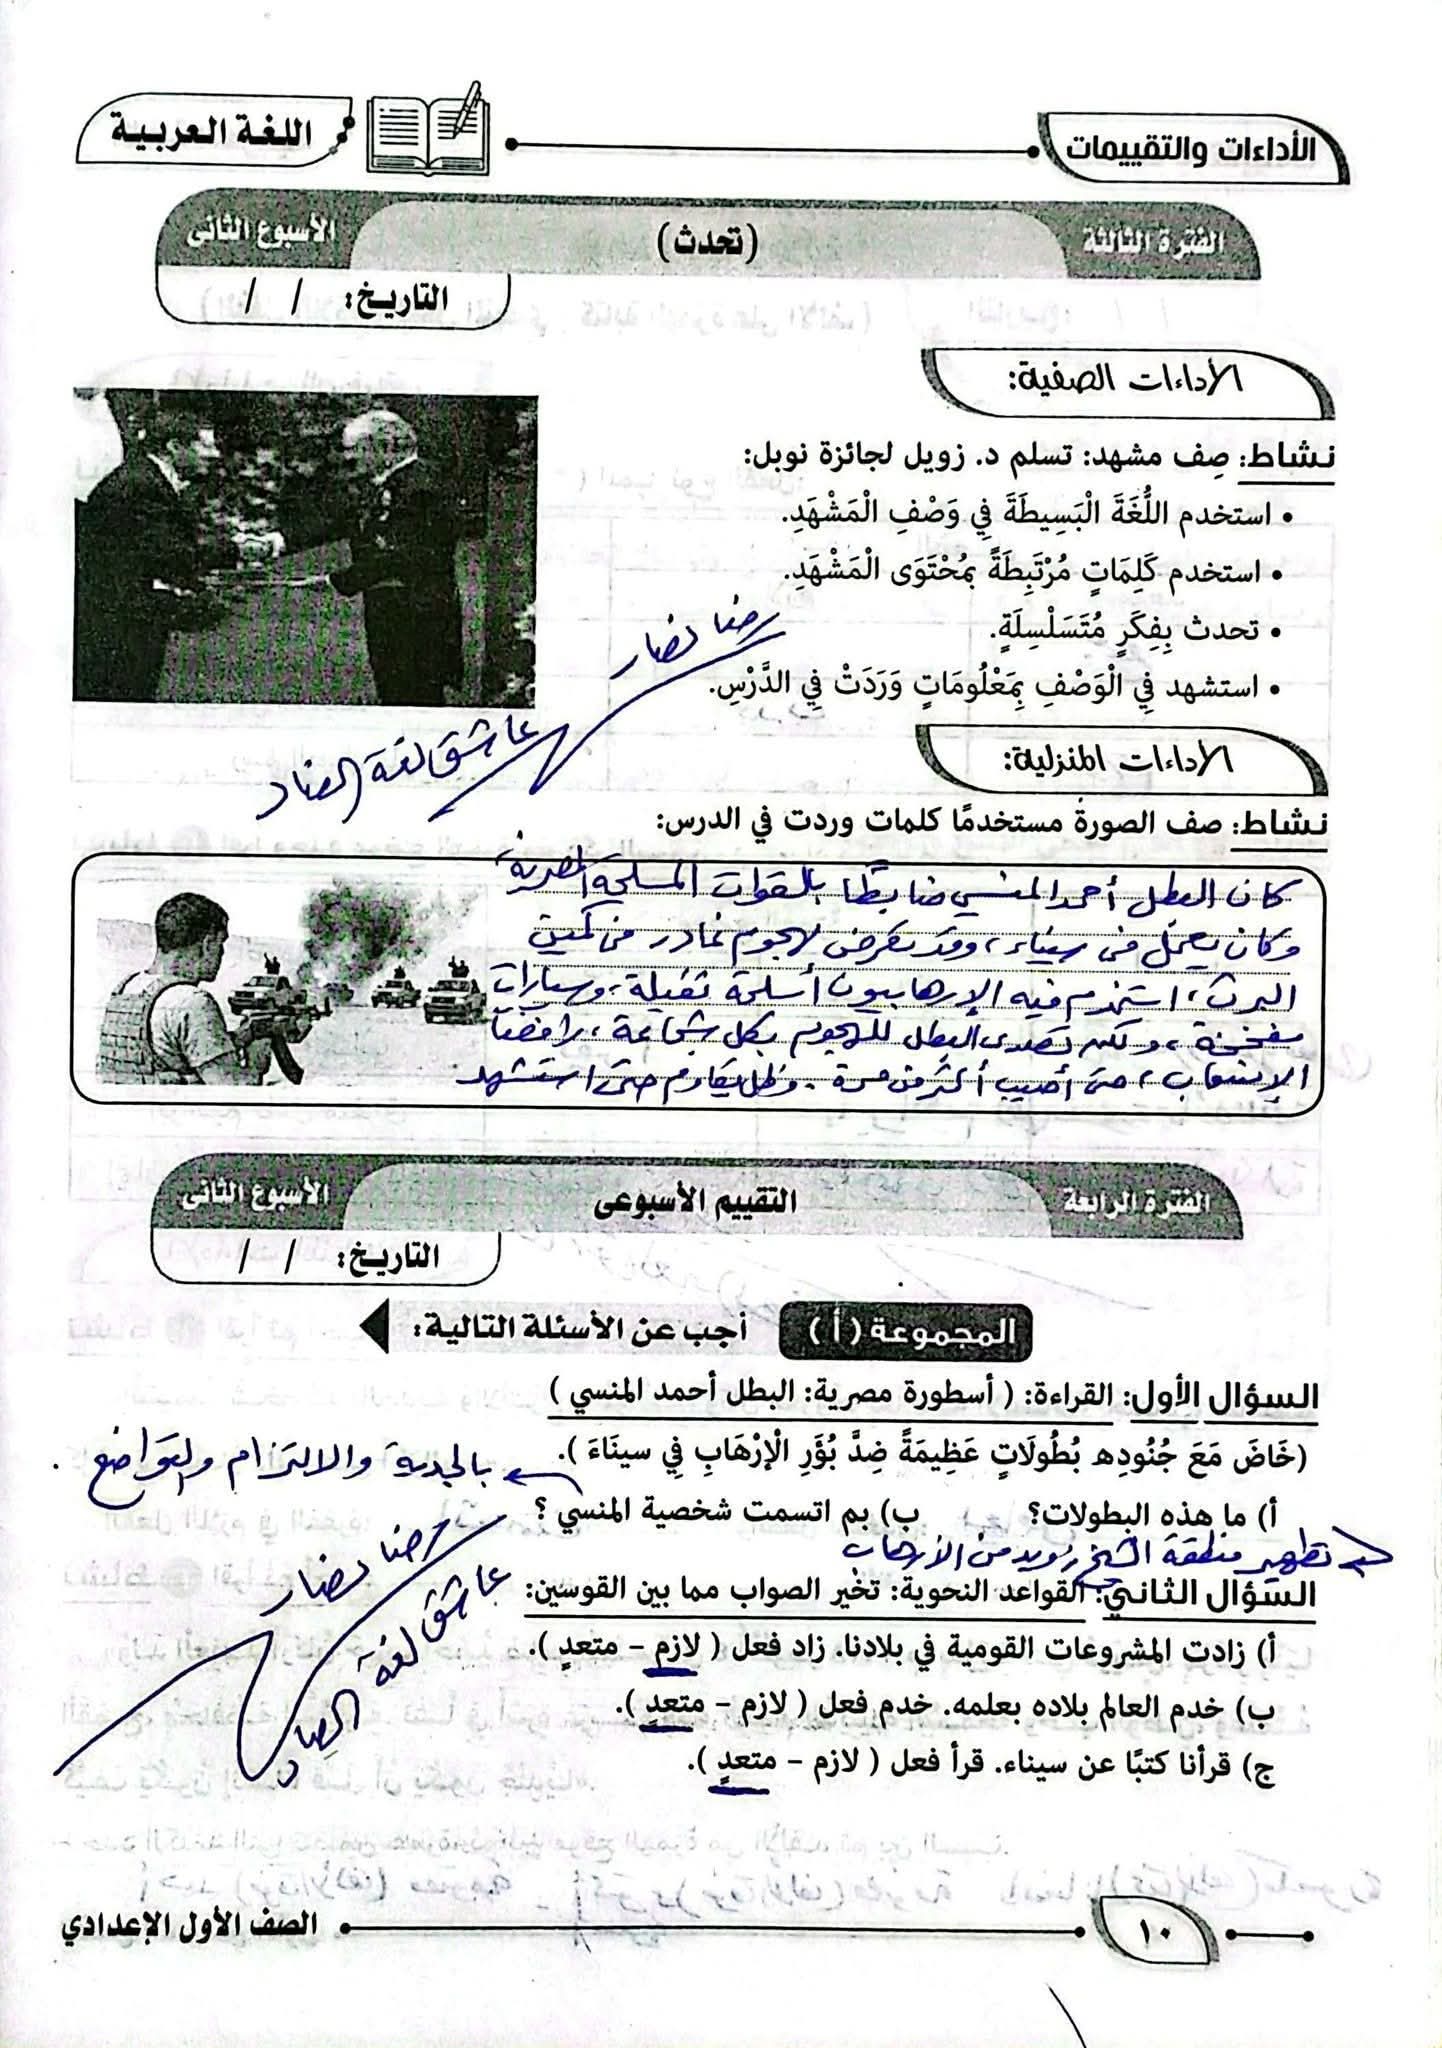 الأداءات والتقييمات
اللغة العربية
الفترة الثالثة
(تحدث)
الأسبوع الثانى
التاريخ: / /
الأداءات الصفية:
نشاط: صِف مشهد: تسلم د. زويل لجائزة نوبل:
• استخدم اللُّغَةَ الْبَسِيطَةَ فِي وَصْفِ الْمَشْهَدِ.
• استخدم كَلِمَاتٍ مُرْتَبِطَةً بِمُحْتَوَى الْمَشْهَدِ.
• تحدث بِفِكَرٍ مُتَسَلْسِلَةٍ.
• استشهد فِي الْوَصْفِ بِمَعْلُومَاتٍ وَرَدَتْ فِي الدَّرْسِ.
رضا نصار
عاشق لغة الضاد
الأداءات المنزلية:
نشاط: صف الصورة مستخدمًا كلمات وردت في الدرس:
كان البطل أحمد المنسي ضابطًا بالقوات المسلحة المصرية،
وكان يعمل فى سيناء، وقد تعرض لهجوم غادر فى كمين
البرث، استخدم فيه الإرهابيون أسلحة ثقيلة، وسيارات
مفخخة، ولكن تصدى البطل للهجوم بكل شجاعة، رافضًا
الإنسحاب، حتى أصيب أكثر من مرة. وظل يقاوم حتى استشهد
الفترة الرابعة
التقييم الأسبوعى
الأسبوع الثانى
التاريخ: / /
المجموعة (أ)
أجب عن الأسئلة التالية:
السؤال الأول: القراءة: ( أسطورة مصرية: البطل أحمد المنسي )
(خَاضَ مَعَ جُنُودِه بُطُولَاتٍ عَظِيمَةً ضِدَّ بُؤَرِ الْإِرْهَابِ فِي سينَاءَ ).
بالجدية والالتزام والتواضع .
أ) ما هذه البطولات؟ ب) بم اتسمت شخصية المنسي ؟
تطهير منطقة الشيخ زويد من الإرهاب
السؤال الثاني: القواعد النحوية: تخير الصواب مما بين القوسين:
أ) زادت المشروعات القومية في بلادنا. زاد فعل ( لازم – متعدٍ ).
ب) خدم العالم بلاده بعلمه. خدم فعل ( لازم – متعدٍ ).
ج) قرأنا كتبًا عن سيناء. قرأ فعل ( لازم – متعدٍ ).
رضا نصار
عاشق لغة الضاد
١٠
الصف الأول الإعدادي